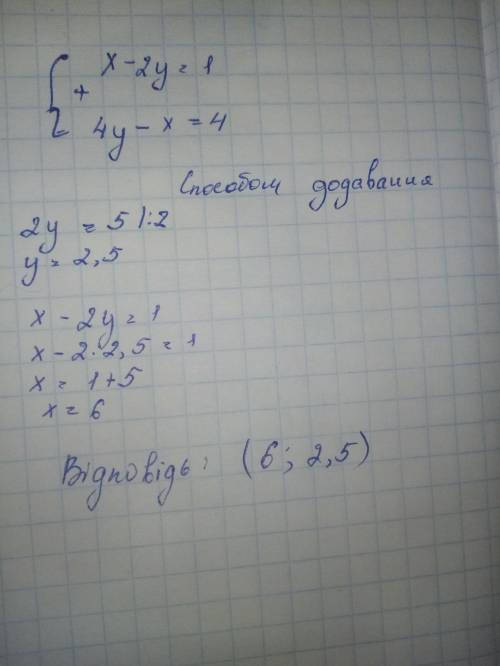 { x - 2y = 1
+
4y - x = 4
Способом додавання
2y = 5 |:2
y = 2,5
x - 2y = 1
x - 2·2,5 = 1
x = 1+5
x = 6
Відповідь: (6; 2,5)